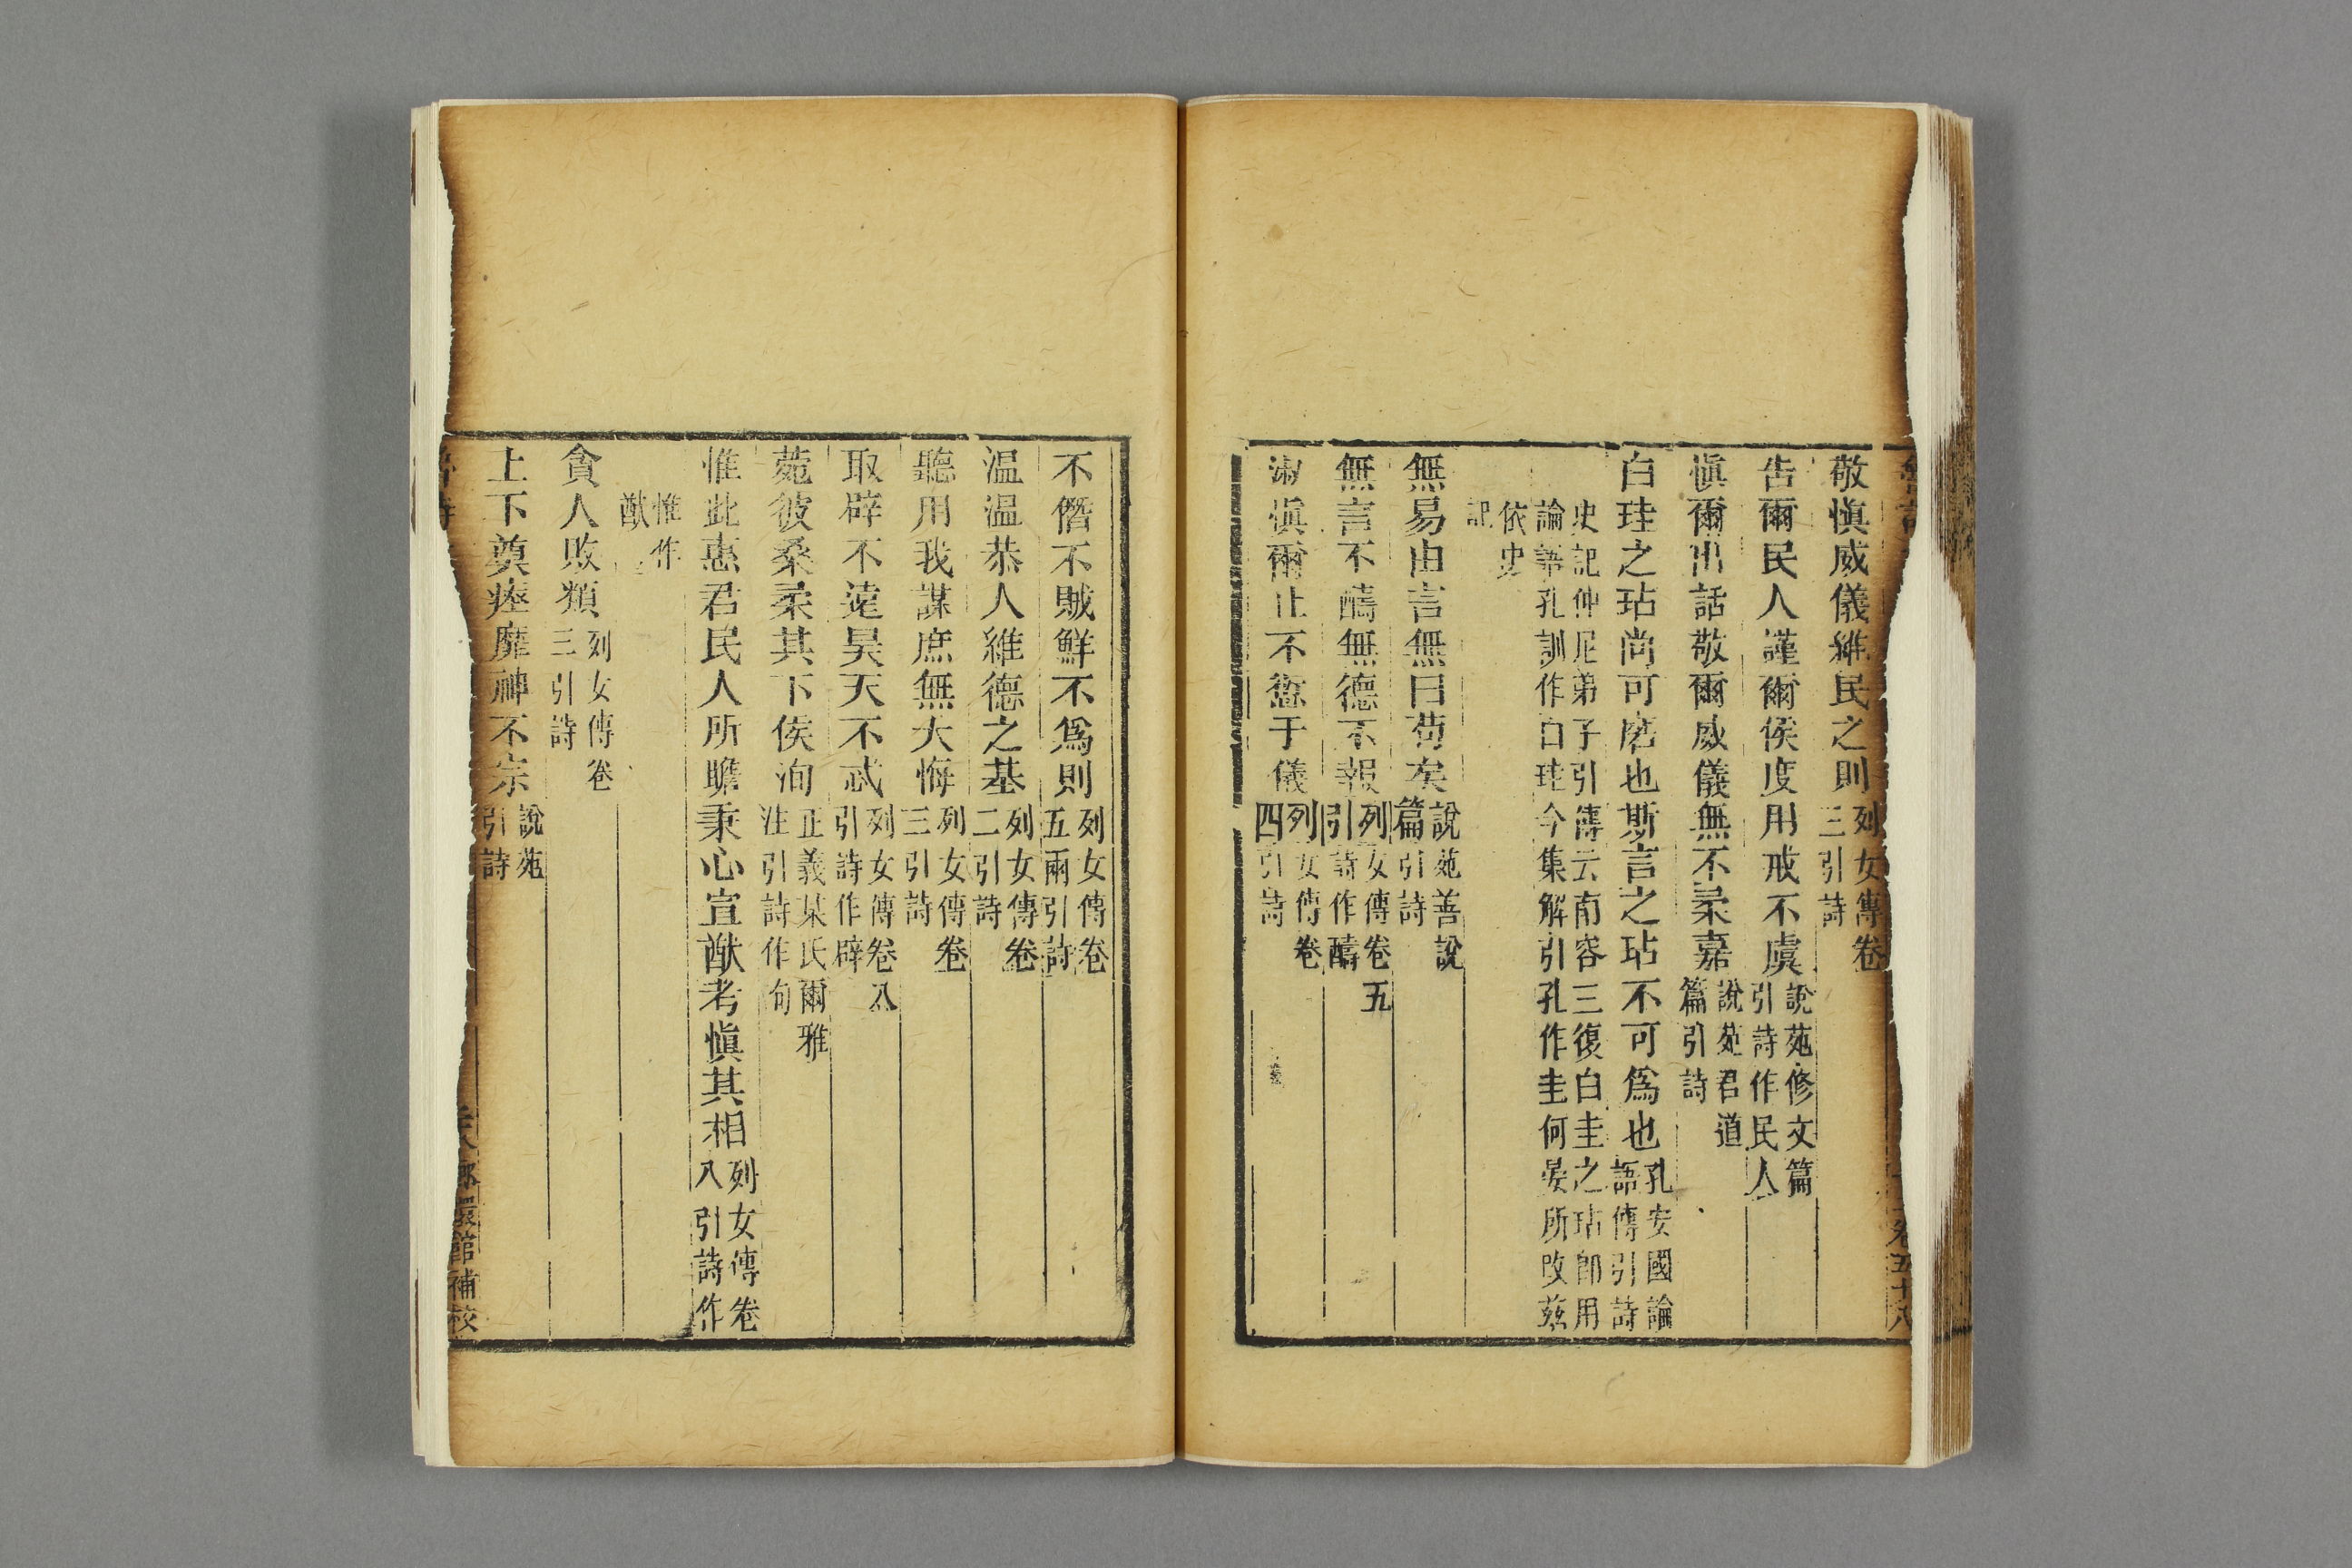 敬愼威儀維民之則列女傳卷三引詩
告爾民人謹爾侯度用戒不虞說苑修文篇引詩作民人
愼爾出話敬爾威儀無不柔嘉說苑君道篇引詩
白珪之玷尚可磨也斯言之玷不可爲也孔安國論語傳引詩
史記仲尼弟子引傳云南容三復白圭之玷卽用
論語孔訓作白珪今集解引孔作圭何晏所改茲
依史
記
無易由言無曰苟矣說苑善說篇引詩
無言不醻無德不報列女傳卷五引詩作醻
淑愼爾止不愆于儀列女傳卷四引詩
卷五十八
不僭不賊鮮不爲則列女傳卷五兩引詩
温温恭人維德之基列女傳卷二引詩
聽用我謀庶無大悔列女傳卷三引詩
取辟不遠昊天不忒列女傳卷八引詩作辟
菀彼桑柔其下侯洵正義某氏爾雅注引詩作旬
惟此惠君民人所瞻秉心宣猷考愼其相列女傳卷八引詩作
惟作
猷
貪人敗類列女傳卷三引詩
上下奠瘞靡神不宗說苑引詩
館補校